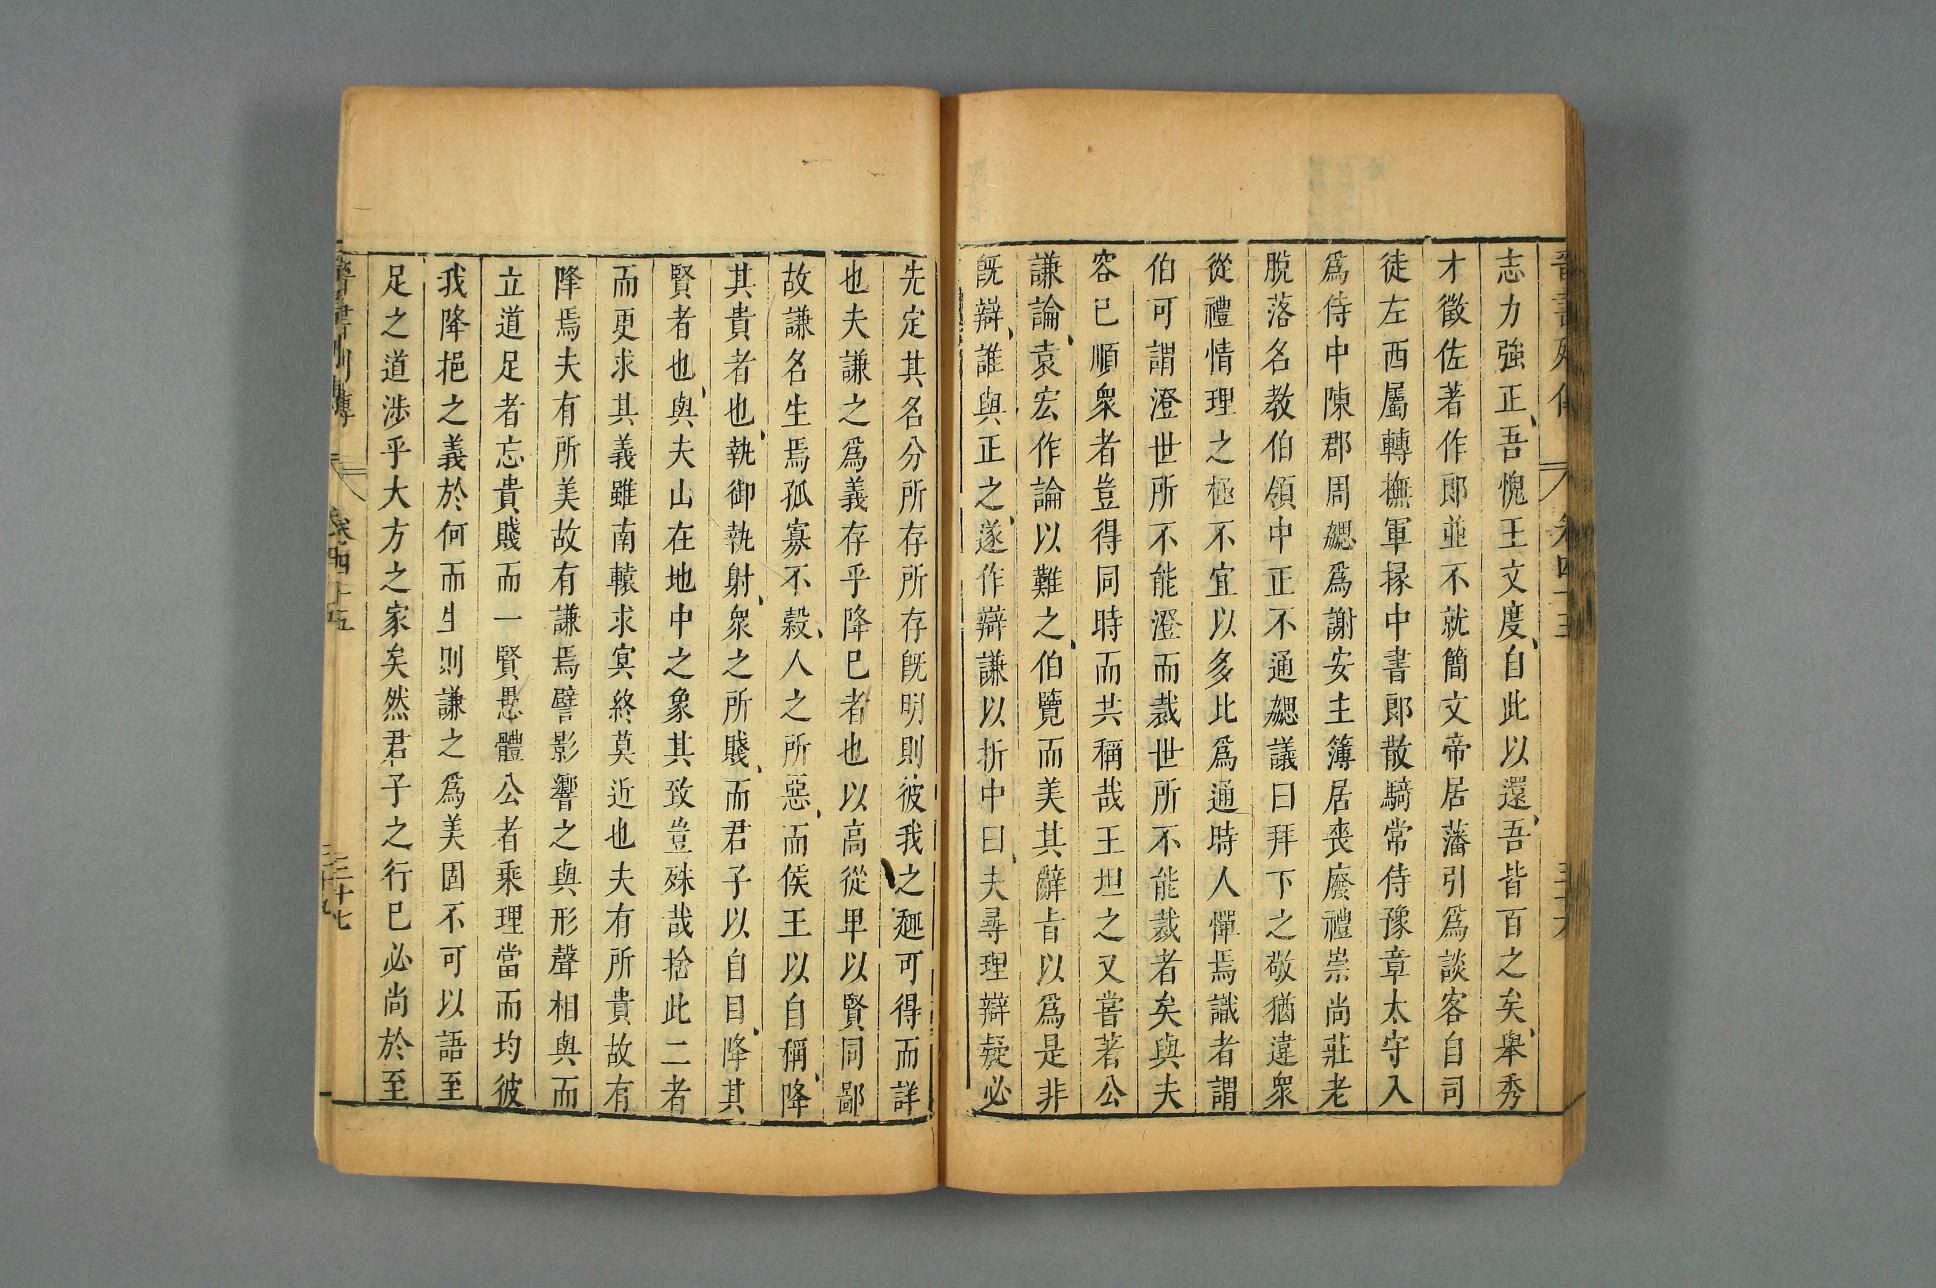 志力強正吾愧王文度自此以還吾皆百之矣舉秀
才徵佐著作郎並不就簡文帝居藩引爲談客自司
徒左西屬轉撫軍掾中書郎散騎常侍豫章太守入
爲侍中陳郡周勰爲謝安主簿居喪廢禮崇尚莊老
脫落名教伯領中正不通勰議曰拜下之敬猶違衆
從禮情理之極不宜以多比爲通時人憚焉識者謂
伯可謂澄世所不能澄而裁世所不能裁者矣與夫
容已順衆者豈得同時而共稱哉王坦之又嘗著公
謙論袁宏作論以難之伯覽而美其辭旨以爲是非
旣辯誰與正之遂作辯謙以折中曰夫尋理辯疑必
先定其名分所存所存旣明則彼我之趣可得而詳
也夫謙之爲義存乎降巳者也以高從卑以賢同鄙
故謙名生焉孤寡不穀人之所惡而侯王以自稱降
其貴者也執御執射衆之所賤而君子以自目降其
賢者也與夫山在地中之象其致豈殊哉捨此二者
而更求其義雖南轅求冥終莫近也夫有所貴故有
降焉夫有所美故有謙焉譬影響之與形聲相與而
立道足者忘貴賤而一賢愚體公者乘理當而均彼
我降挹之義於何而生則謙之爲美固不可以語至
足之道涉乎大方之家矣然君子之行巳必尚於至
晉書列傳 卷四十五 三十七